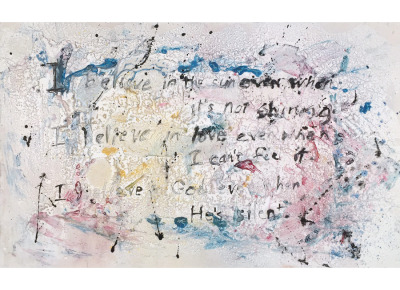 I believe in the sun even when
it's not shining
I believe in love even when
I can't feel it
I believe in God even when
He's silent.